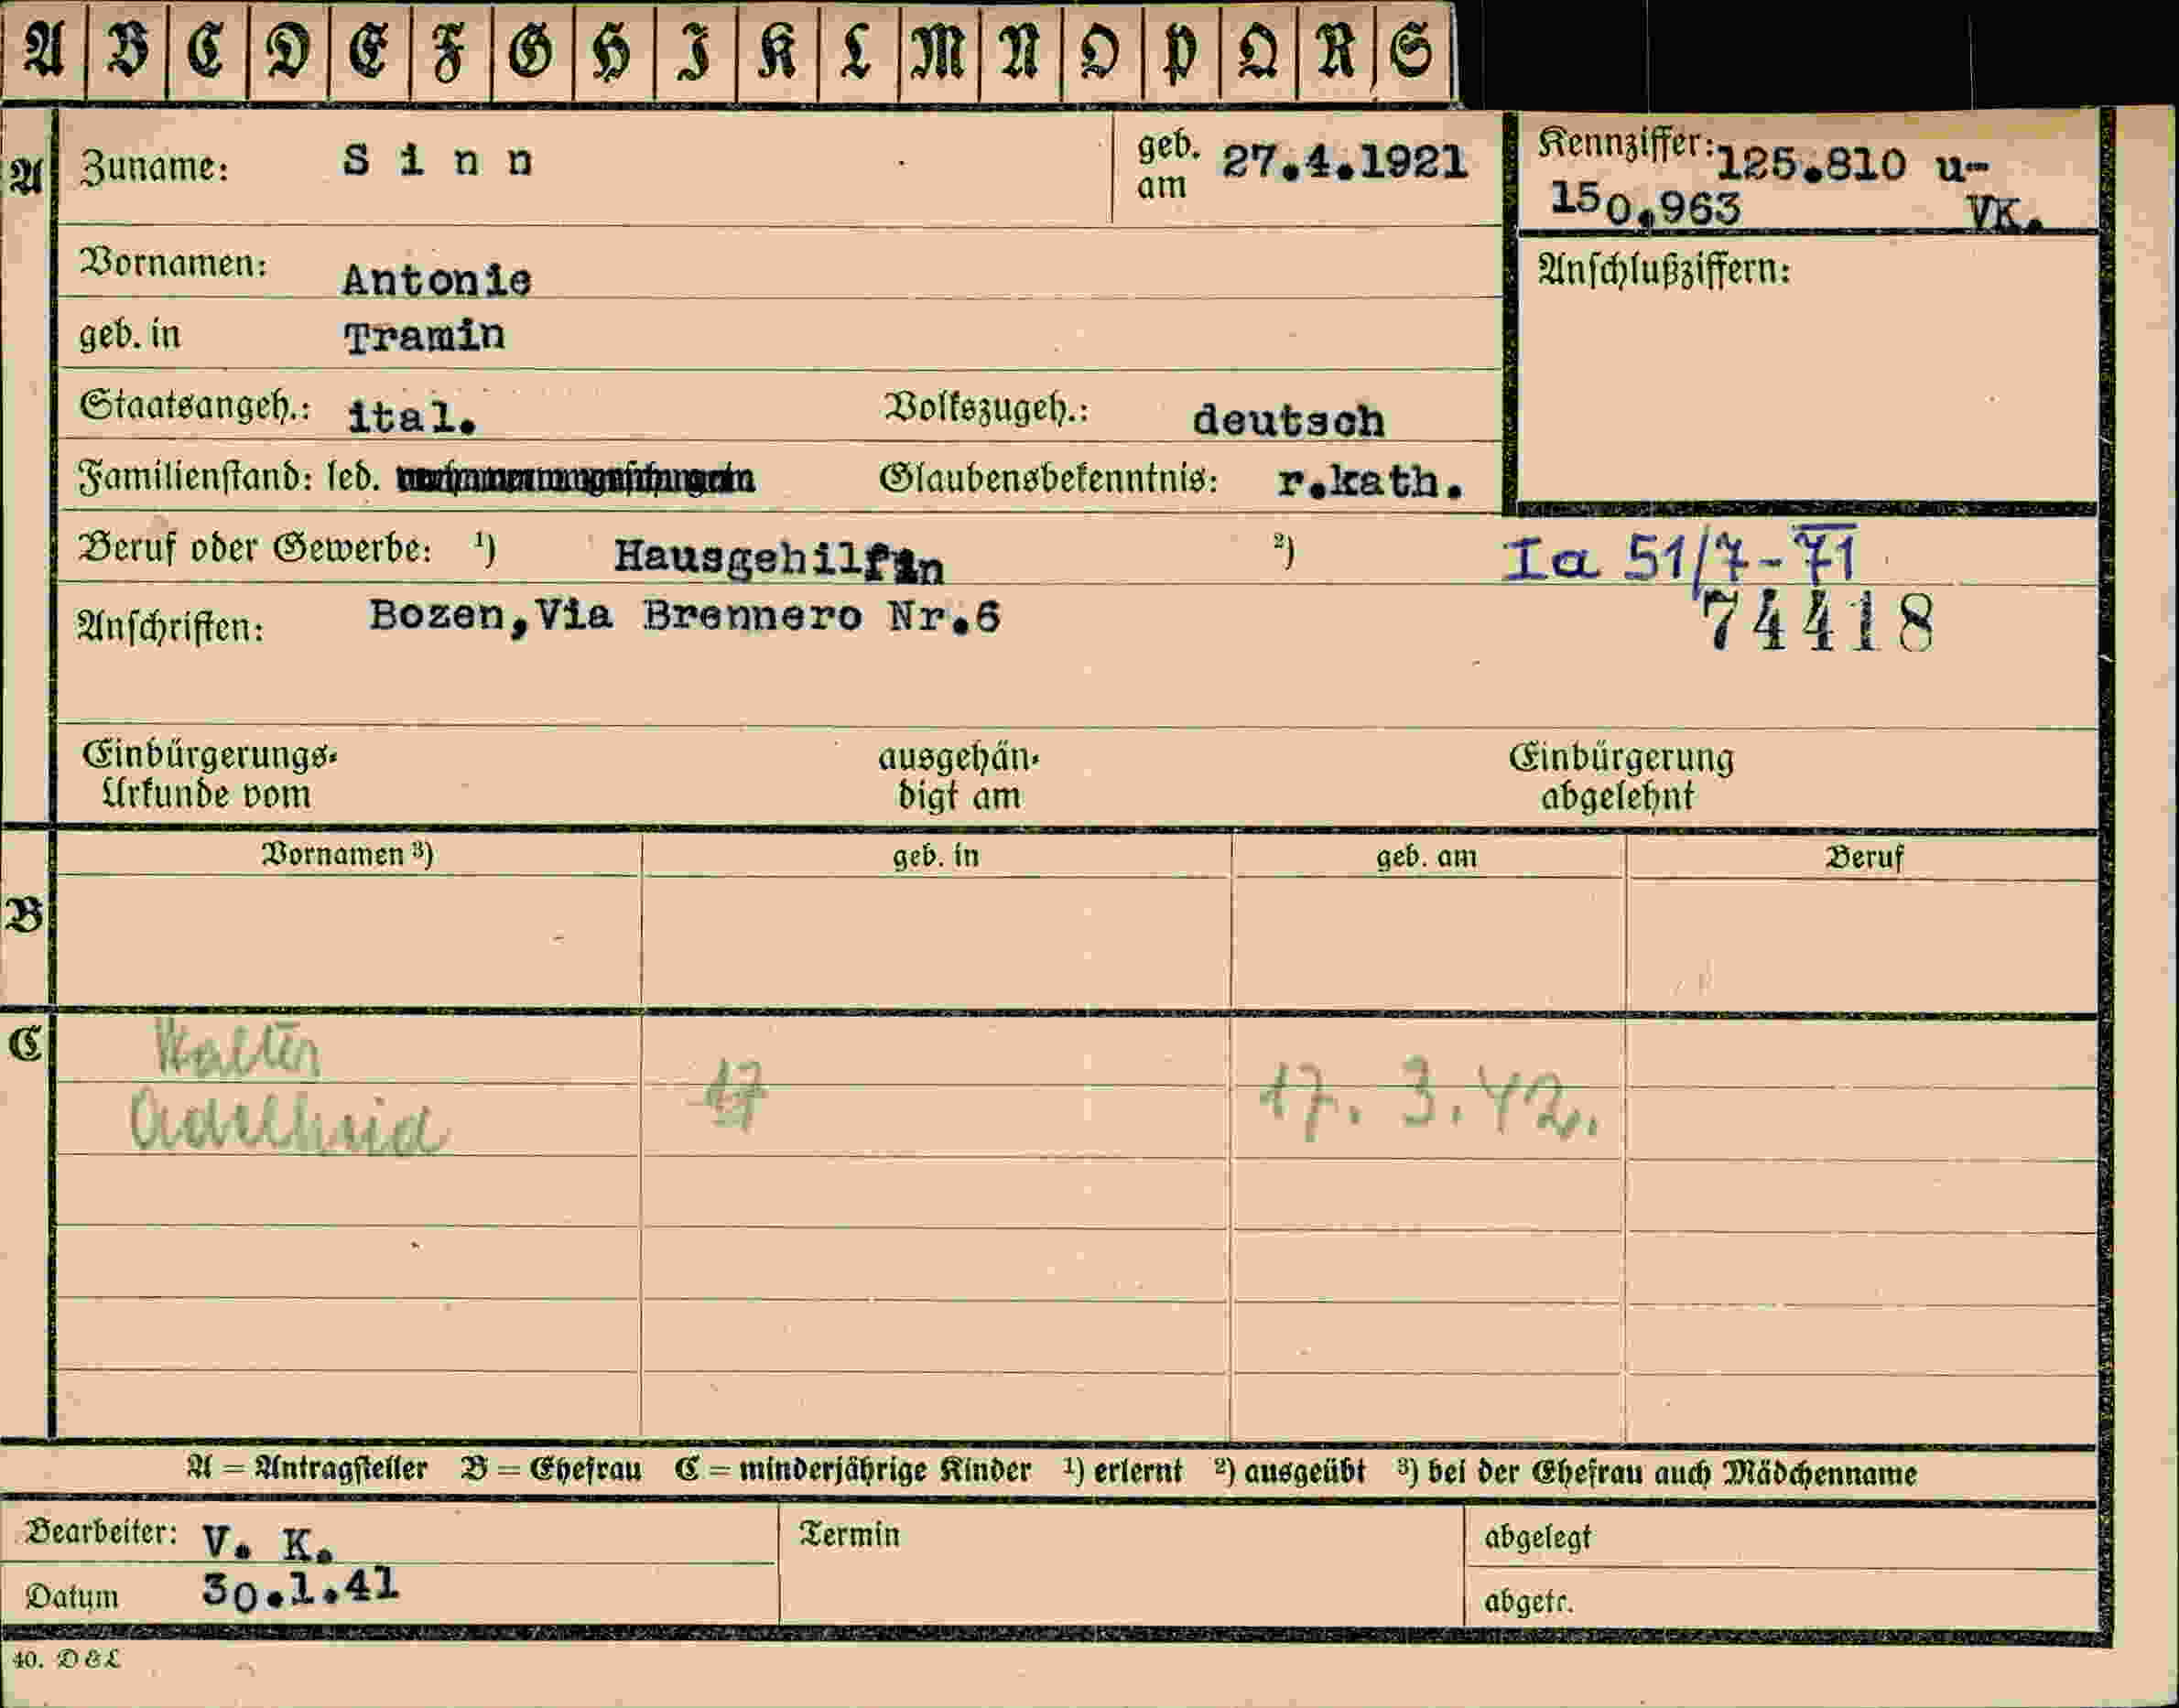 A B C D E F G H I K L M N O P Q R S
A
Zuname: Sinn geb. am 27.4.1921
Kennziffer: 125.810 u-
150.963 VK.
Vornamen: Antonie
Anschlußziffern:
geb. in Tramin
Staatsangeh.: ital. Volkszugeh.: deutsch
Familienstand: led. Glaubensbekenntnis: r.kath.
Beruf oder Gewerbe: ¹) Hausgehilfin ²) Ia 51/7-71
Anschriften: Bozen,Via Brennero Nr.6 74418
Einbürgerungs- ausgehän- Einbürgerung
Urkunde vom digt am abgelehnt
B
Vornamen ³) geb. in geb. am Beruf
C
Walter
Adelheid 17 17. 3. 42.
A = Antragsteller B = Ehefrau C = minderjährige Kinder ¹) erlernt ²) ausgeübt ³) bei der Ehefrau auch Mädchenname
Bearbeiter: V. K. Termin abgelegt
Datum 30.1.41 abgetr.
40. D & L